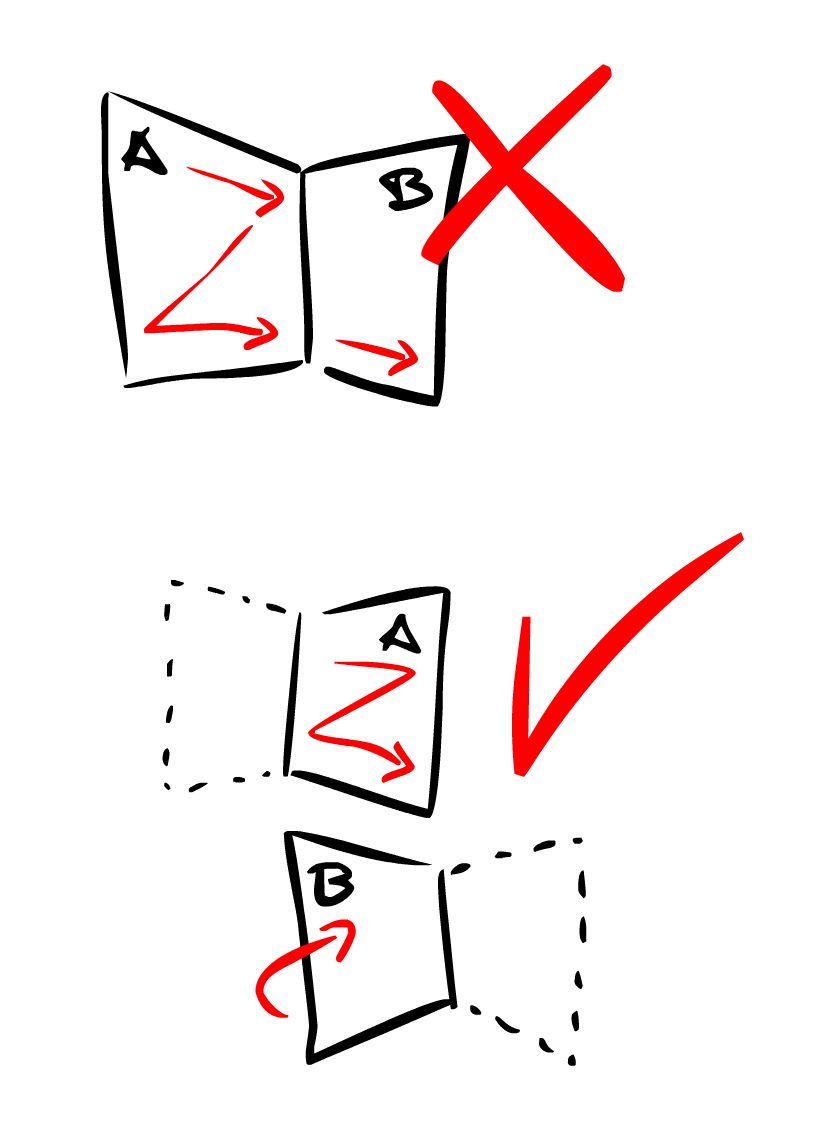 A
B
A
B